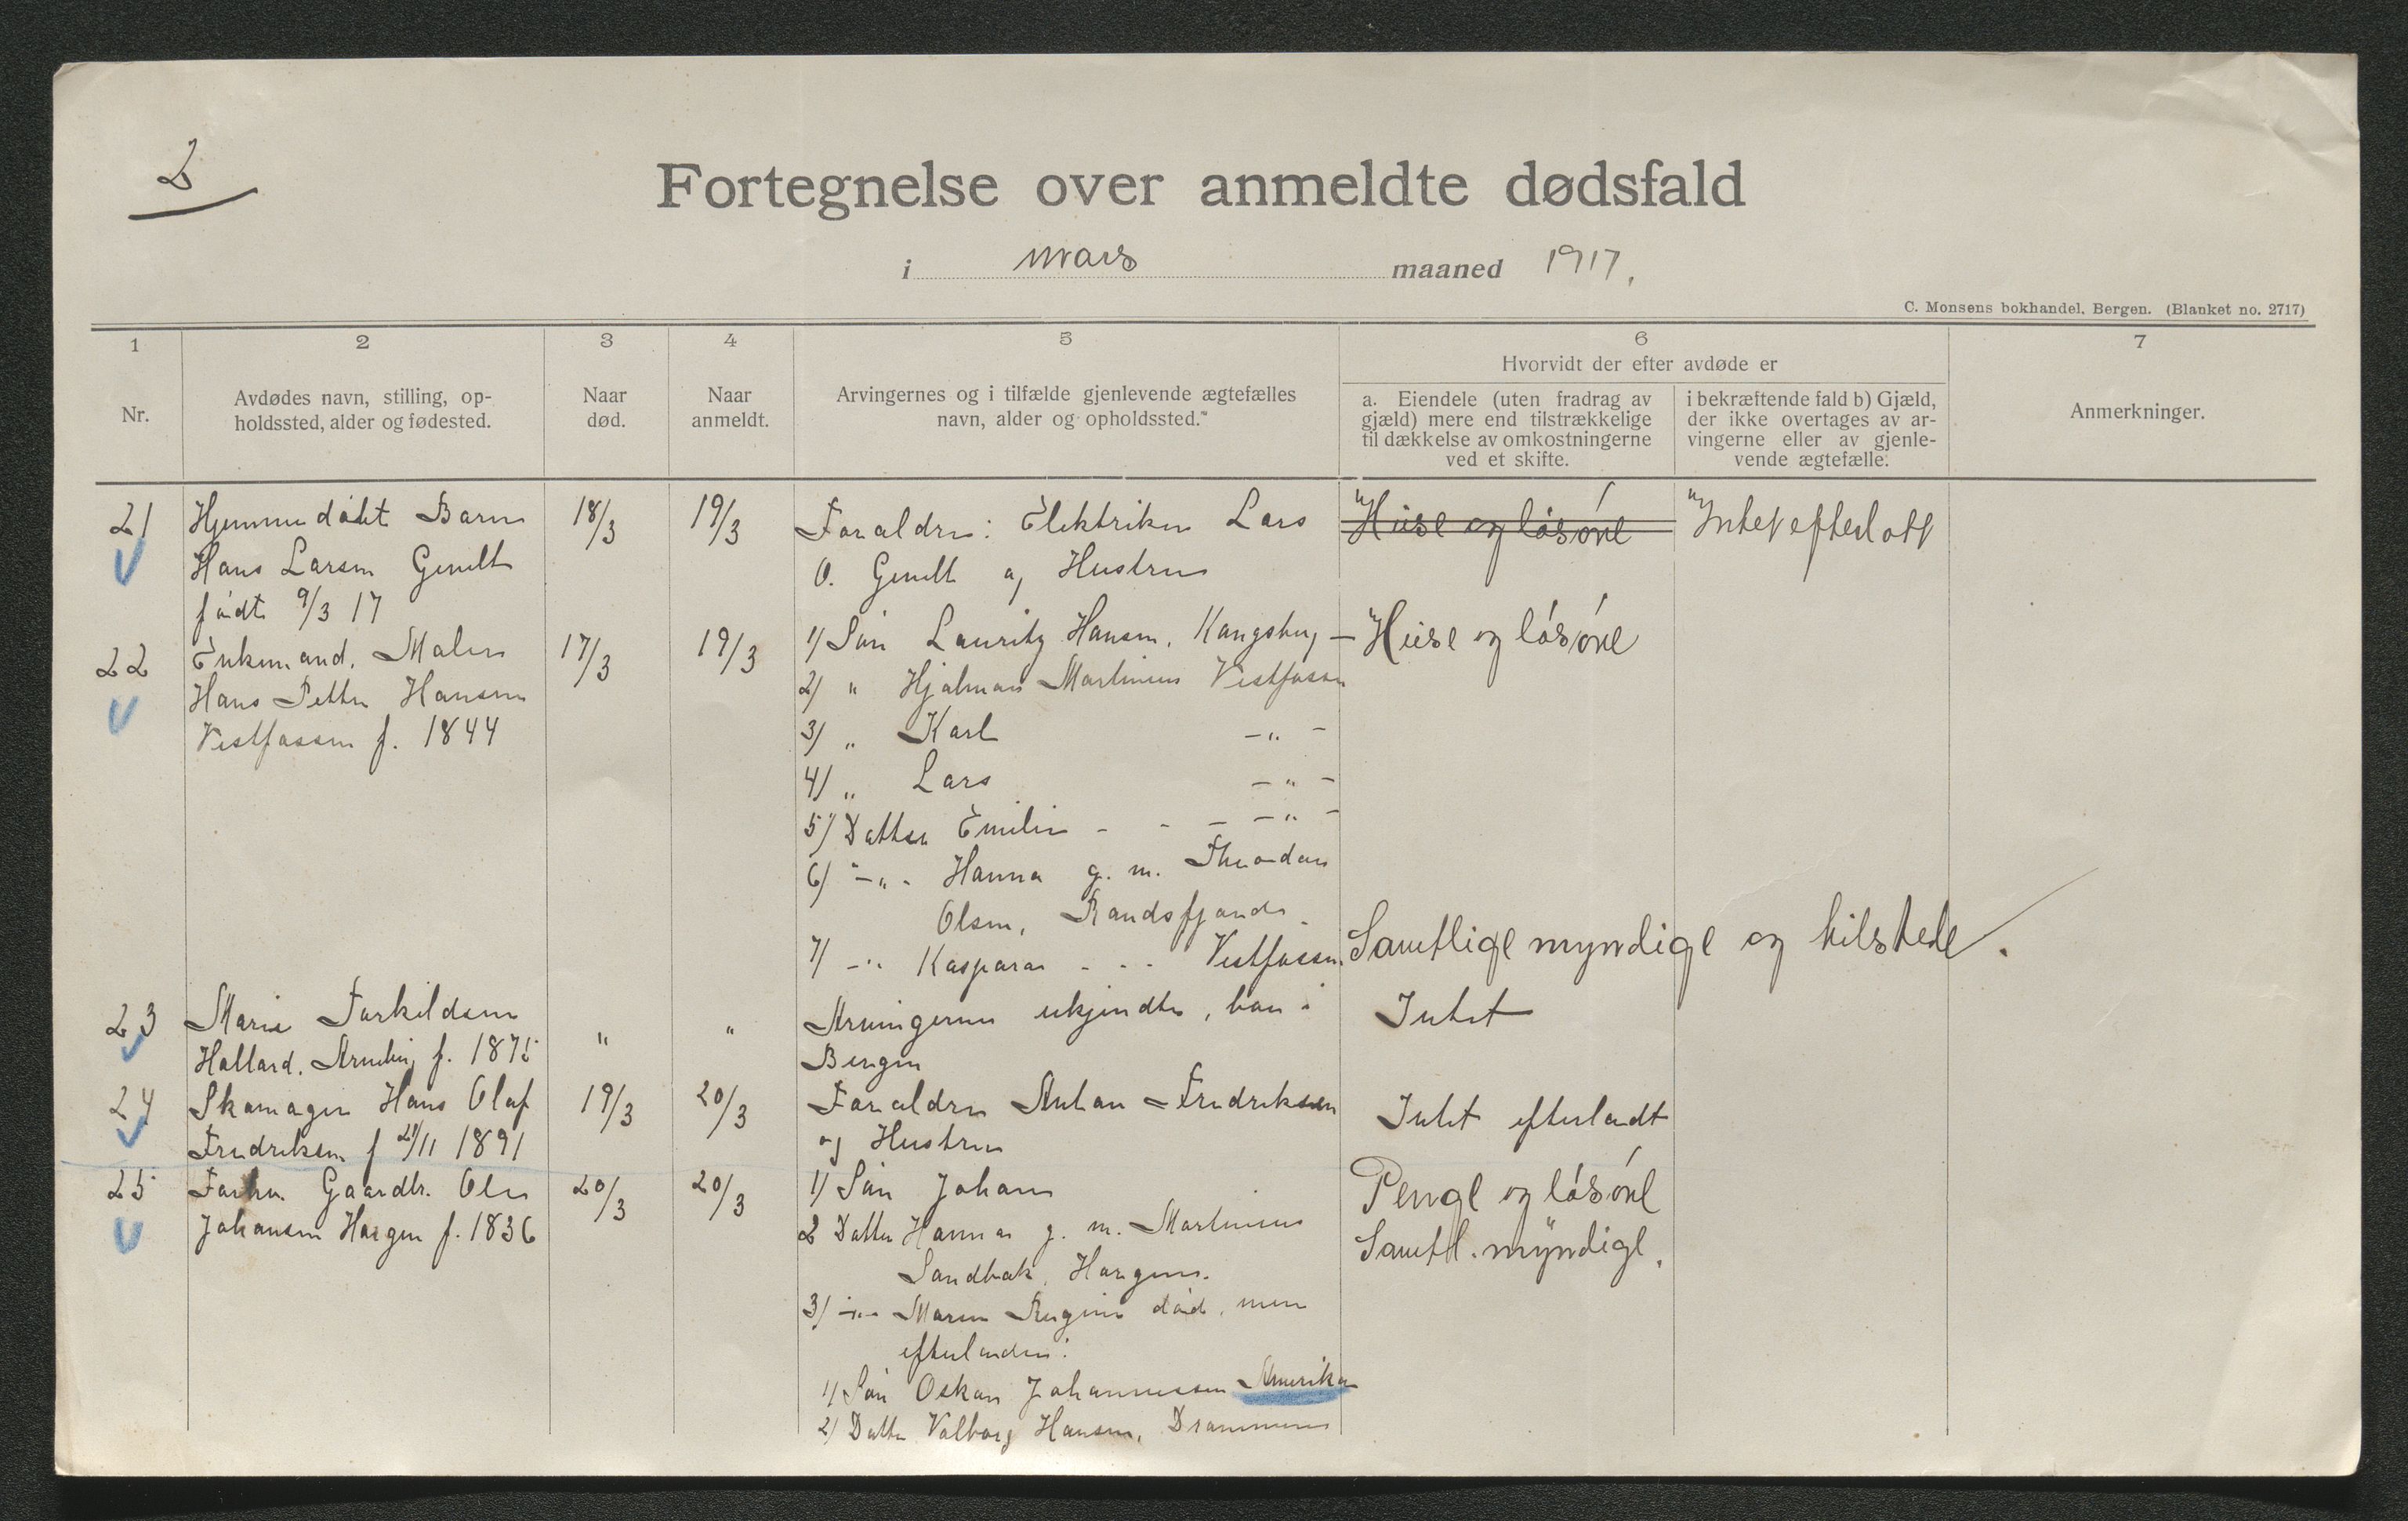 2
Fortegnelse over anmeldte dødsfald
i mars maaned 1917.
C. Monsens bokhandel, Bergen. (Blanket no. 2717)
1 2 3 4 5 6 7
Hvorvidt der efter avdøde er
Nr.
Avdødes navn, stilling, op-
holdssted, alder og fødested.
Naar
død.
Naar
anmeldt.
Arvingernes og i tilfælde gjenlevende ægtefælles
navn, alder og opholdssted."
a. Eiendele (uten fradrag av
gjæld) mere end tilstrækkelige
til dækkelse av omkostningerne
ved et skifte.
i bekræftende fald b) Gjæld,
der ikke overtages av ar-
vingerne eller av gjenle-
vende ægtefælle.
Anmerkninger.
21 Hjemmedøbt Barn 18/3 19/3 Forældre: Elektriker Lars Huse og løsøre Intet efterlatt
Hans Larsen O. og Hustru
født 9/3 17
22 Enkemand, Maler 17/3 19/3 1/ Søn Lauritz Hansen, Kongsberg — Huse og løsøre
Hans Petter Hansen 2/ " Hjalmar Martinius Vestfossen
Vestfossen f. 1844 3/ " Karl -"-
4/ " Lars -"-
5/ Datter Emilie - - - -"-
6/ -"- Hanna g. m. Theodor
Olsen, Randsfjord.
7/ -"- Kaspara - - - Vestfossen. Samtlige myndige og tilstede.
23 Marie Torkildsen " " Arvingerne ukjendte, bor i Intet
f. 1875 Bergen
24 Skomager Hans Olaf 19/3 20/3 Forældre Anton Fredriksen Intet efterladt
Fredriksen f 21/11 1891 og Hustru
25 Forhv. Gaardbr. Ole 20/3 20/3 1/ Søn Johan Penge og løsøre
Johansen Horgen f. 1836 2 Datter Hanna g. m. Martinius Samtl. myndige.
Sandbak, Horgen.
3/ -"- Maren Regine død, men
efterladr:
1/ Søn Oskar Johannessen Amerika
2/ Datter Valborg Hansen, Drammen